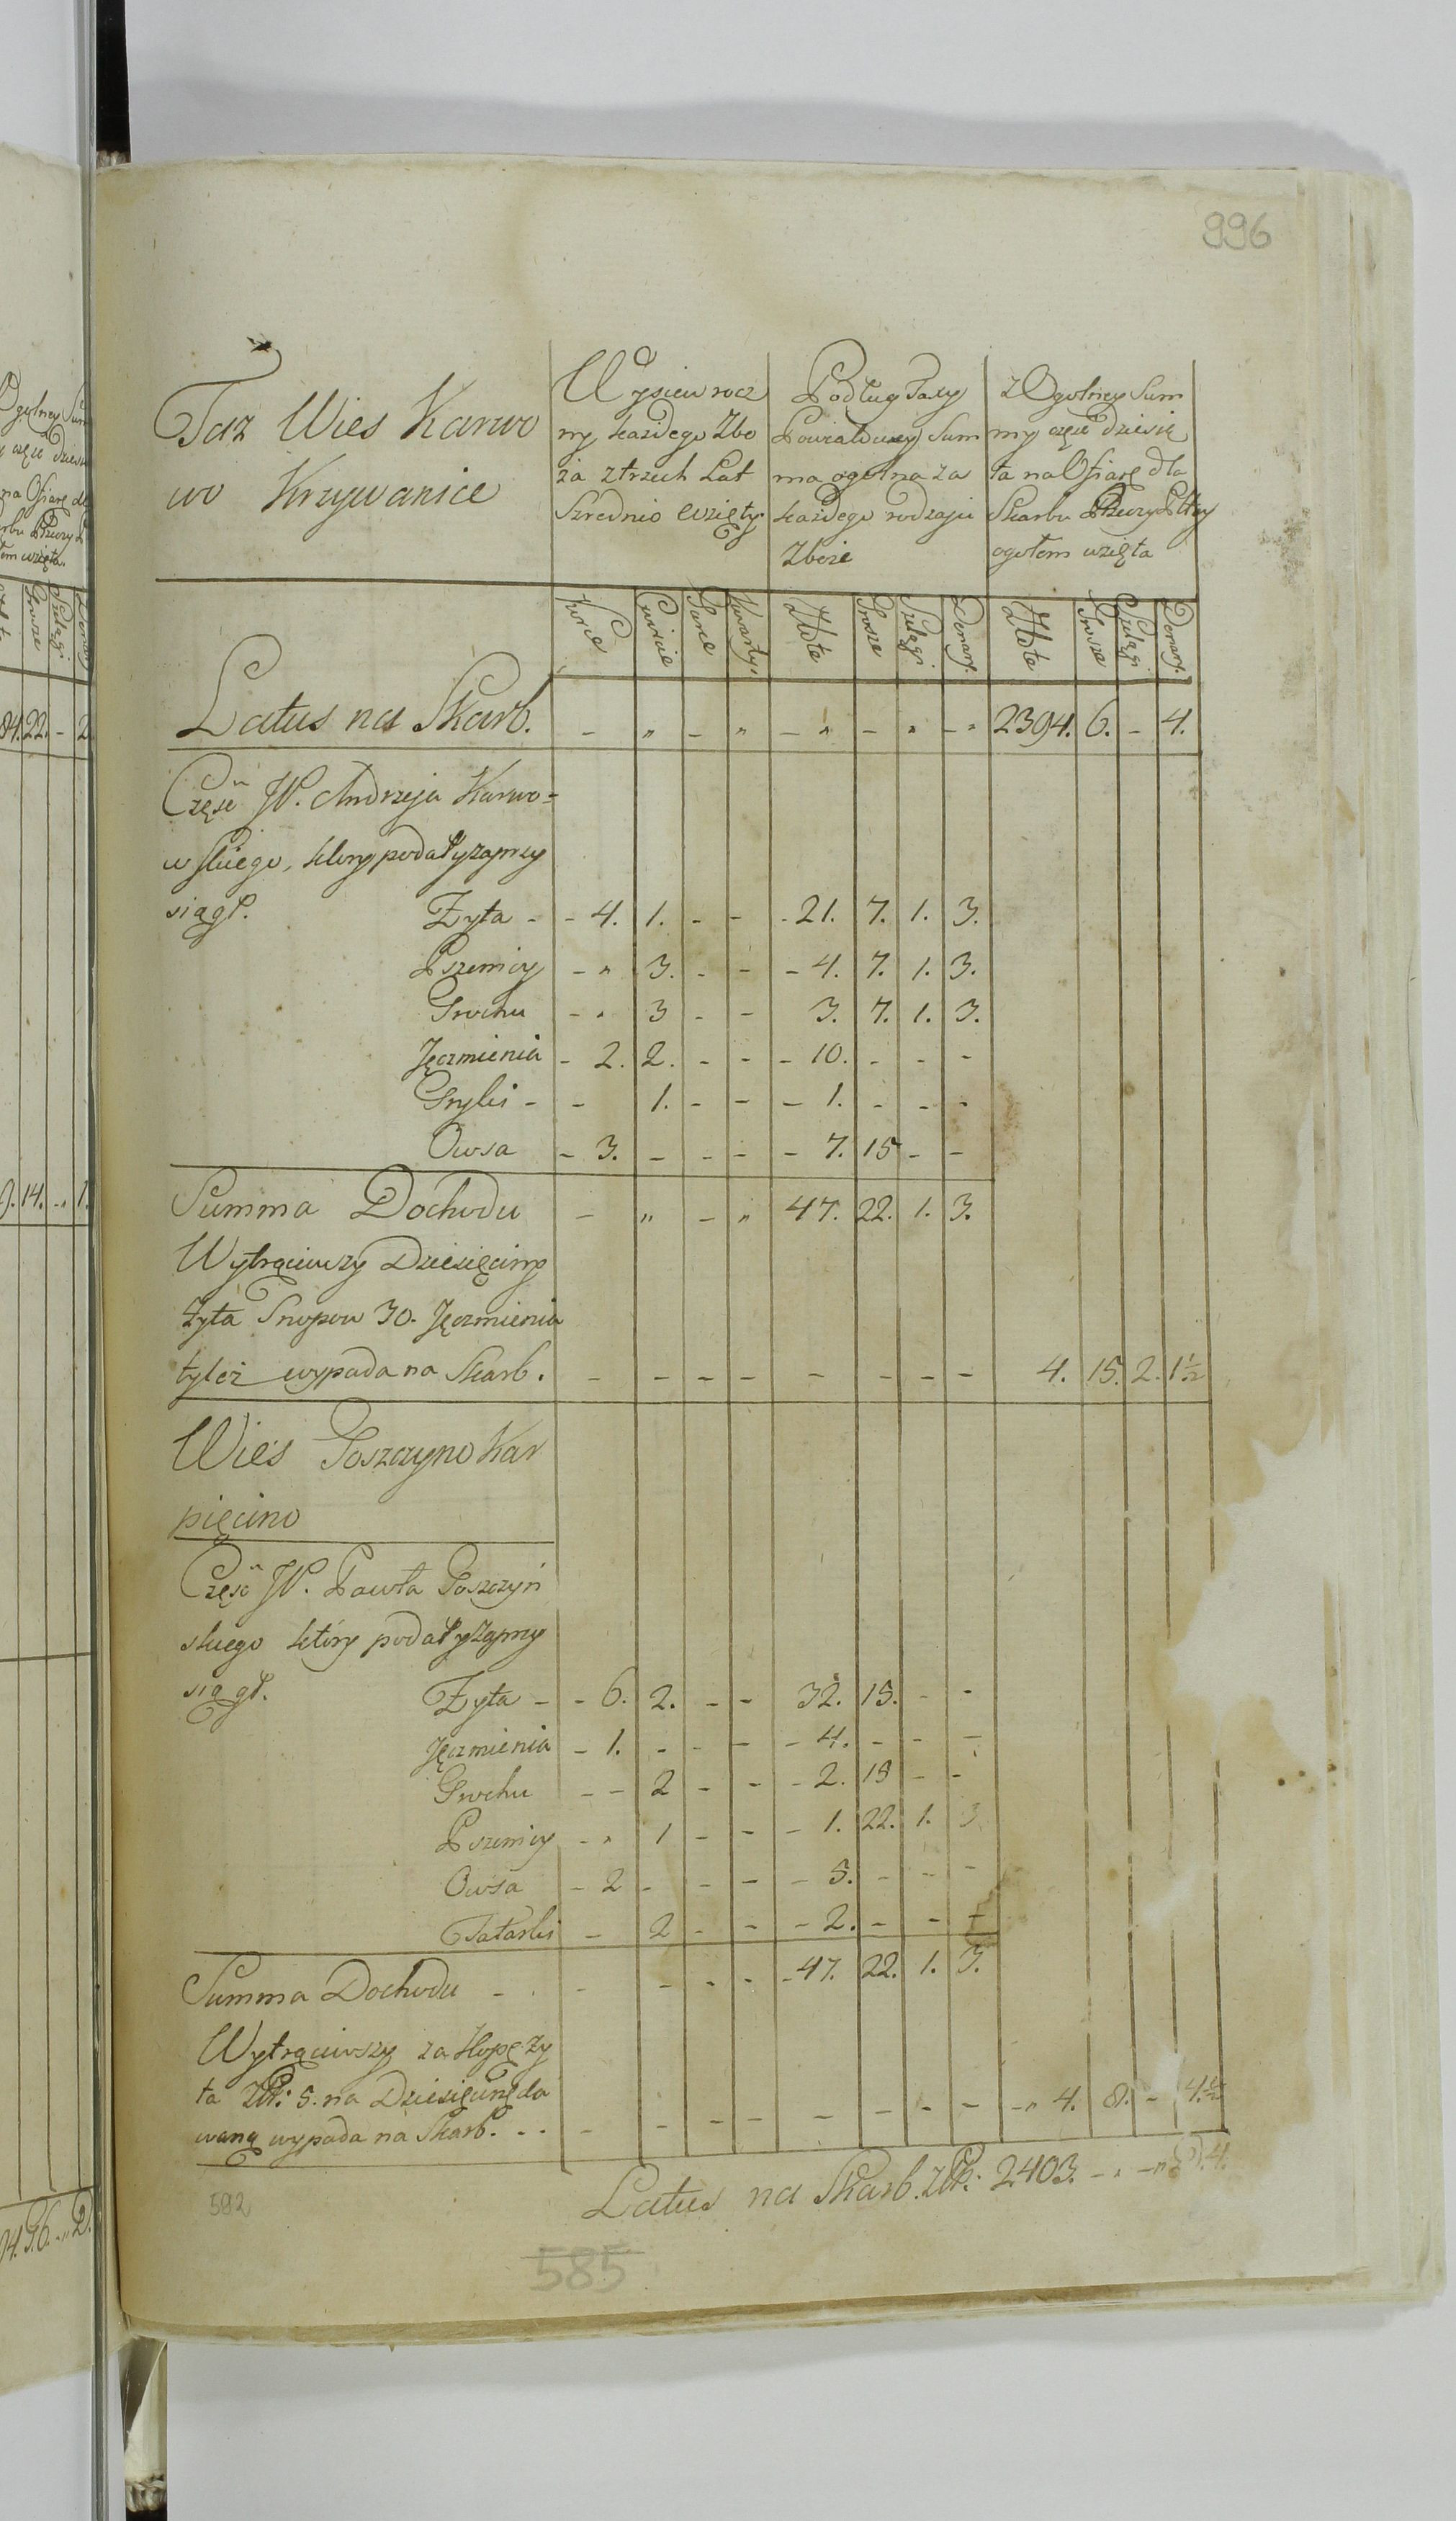 996
Taz Wies Karwo
wo Krzywanice
Wysiew rocz
ny każdego Zbo
ża z trzech Lat
Szrednio wzięty.
Podług Taxy
Powiatowey Sum
ma ogolna za
każdego rodzaju
Zboże
z Ogolney Sum
my częśc dziesią
ta na Ofiarę dla
Skarbu Rzeczy Plltey
ogołem wzięta
Korce Cwircie Garce Kwarty. Złote Grosze Szelągi Denary. Złote Grosze Szelągi Denary.
Latus na Skarb. - „ - „ - „ - „ - „ 2394. 6. - 4.
Częśc JP. Andrzeja Karwo=
wskiego, ktory podał y zaprzy
siągł. Zyta - - 4. 1. - - - 21. 7. 1. 3.
Pszenicy - „ 3. - - - 4. 7. 1. 3.
Grochu - „ 3 - - 3. 7. 1. 3.
Jęczmienia - 2. 2. - - - 10. - - -
Gryki - - 1. - - - 1. - - -
Owsa - 3. - - - - 7. 15 - -
Summa Dochodu - „ - „ 47. 22. 1. 3.
Wytrąciwszy Dziesięcinę
Zyta Snopow 30. Jęczmienia
tyleż wypada na Skarb. - - - - - - - - 4. 15. 2. 1 1/2
Wieś Goszczyno Kar
pięcino
Częśc JP. Pawła Goszczyń
skiego który podał y zaprzy
siągł. Zyta - - 6. 2. - - 32. 15. - -
Jęczmienia - 1. - - - - 4. - - -
Grochu - - 2 - - - 2. 15 - -
Pszenicy - „ 1 - - - 1. 22. 1. 3
Owsa - 2 - - - - 5. - - -
Tatarki - 2 - - - 2. - - -
Summa Dochodu - . - - - - - 47. 22. 1. 3.
Wytrąciwszy za Kopę Zy
ta Złł: 5. na Dziesięcinę da
waną wypada na Skarb. . . - - - - - - - - - „ 4. 8. -
Latus na Skarb. Złł: 2403. - „ - „
592
585